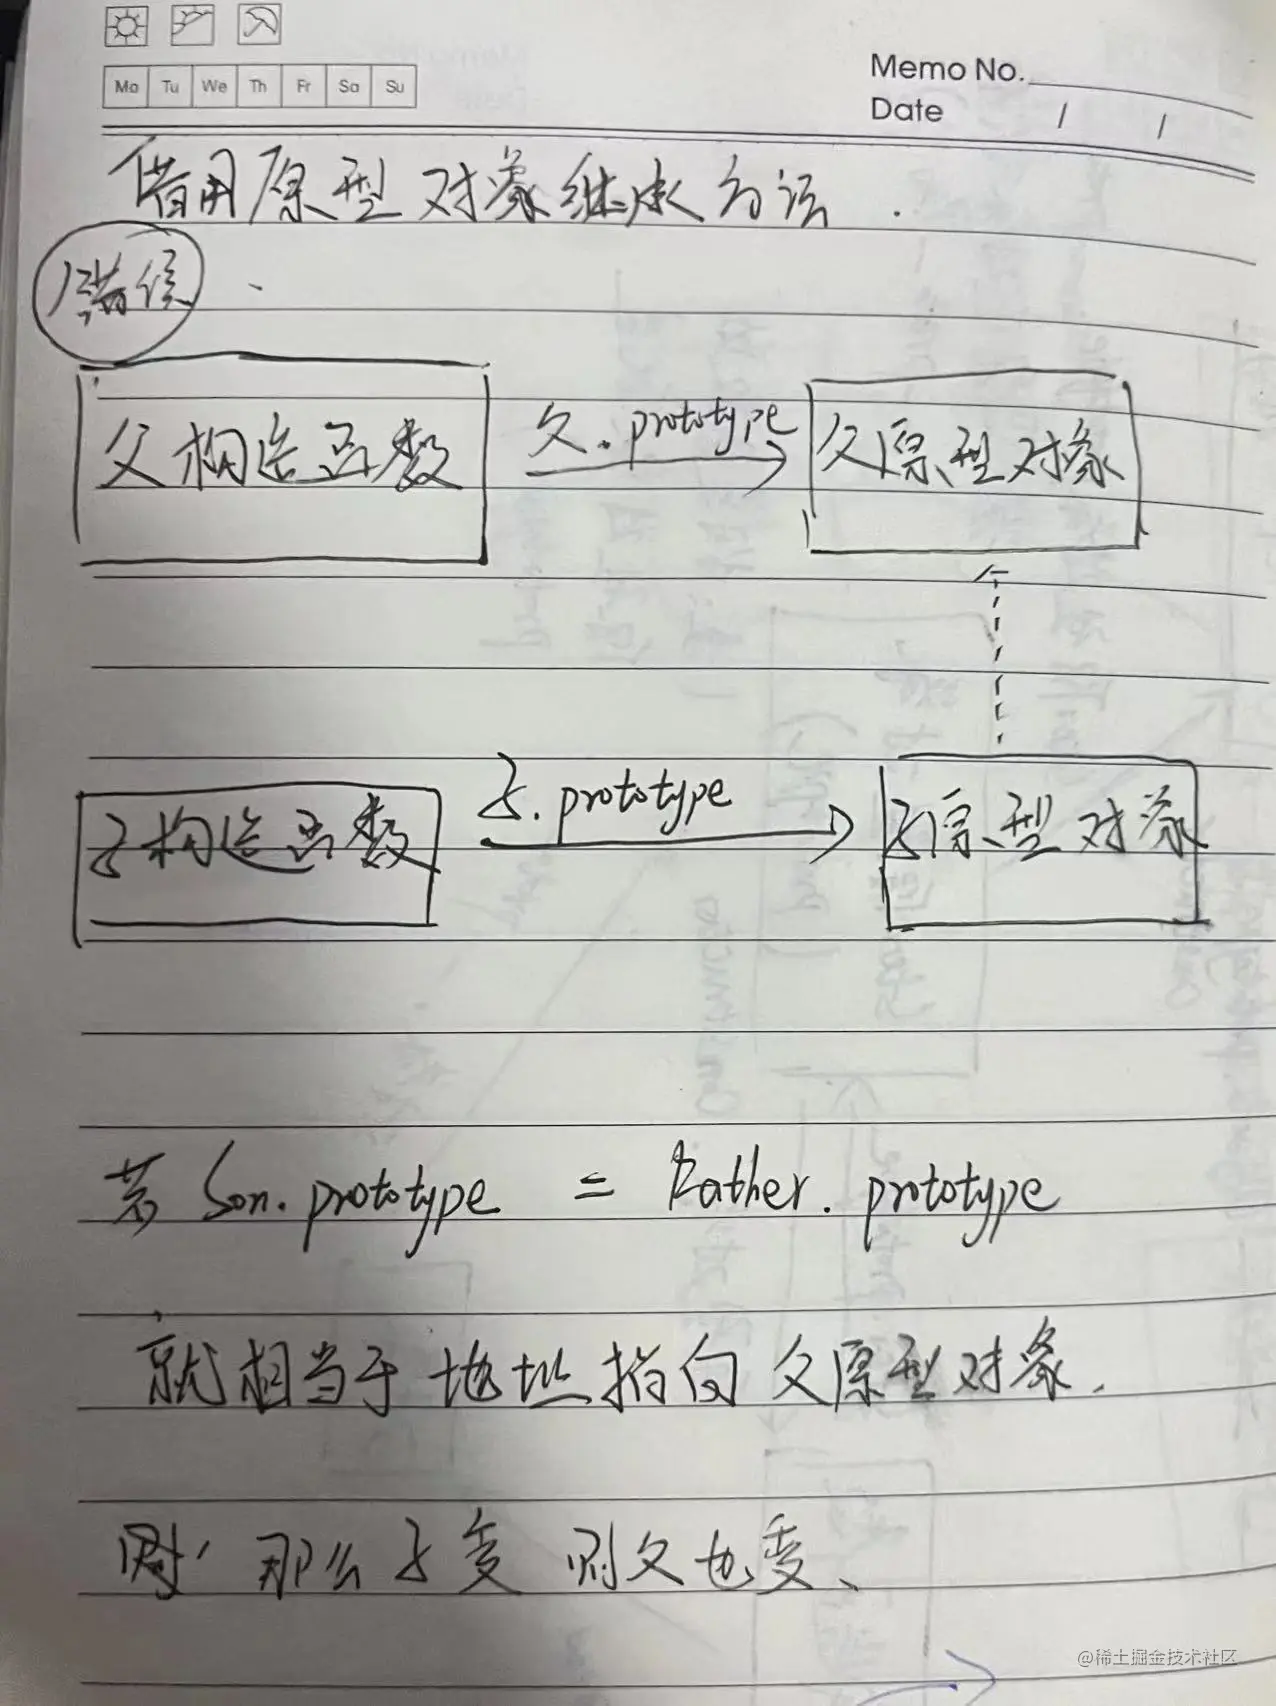 Mo Tu We Th Fr Sa Su
Memo No.
Date / /
借用原型对象继承方法.
错误
父构造函数
父.prototype
父原型对象
子构造函数
子.prototype
子原型对象
若 Son.prototype = Father.prototype
就相当于地址指向父原型对象.
那么子变 则父也变、
@稀土掘金技术社区